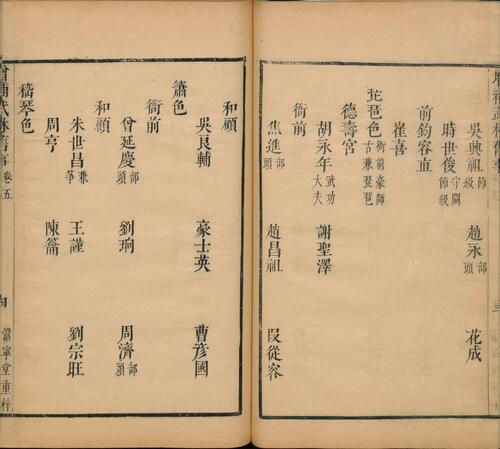 吳興祖節級 趙永部頭 花成
時世俊守闕節級
前鈞容直
崔喜
琵琶色衙前豪師古兼琵琶
德壽宮
胡永年武功大夫 謝聖澤
衙前
焦進部頭 趙昌祖 段從容
和顧
吳良輔 豪士英 曹彥國
簫色
衙前
曾延慶部頭 劉珦 周濟部頭
和顧
朱世昌兼箏 王謹 劉宗旺
周亨 陳籥
嵇琴色
增補武林舊事 卷五 嘉寧堂重梓